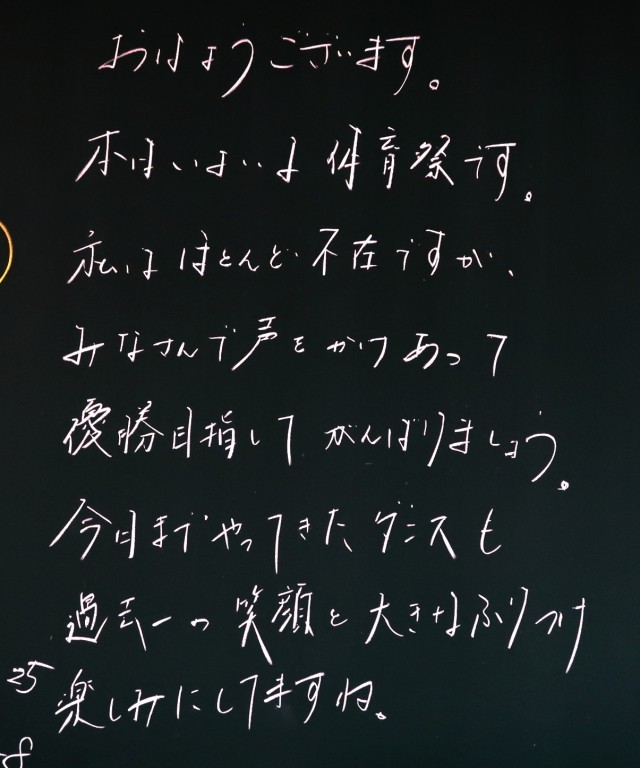 おはようございます。
本日はいよいよ体育祭です。
私はほとんど不在ですが、
みなさんで声をかけあって
優勝目指してがんばりましょう。
今日までやってきたダンスも
過去一の笑顔と大きなふりつけ
25 楽しみにしてますね。